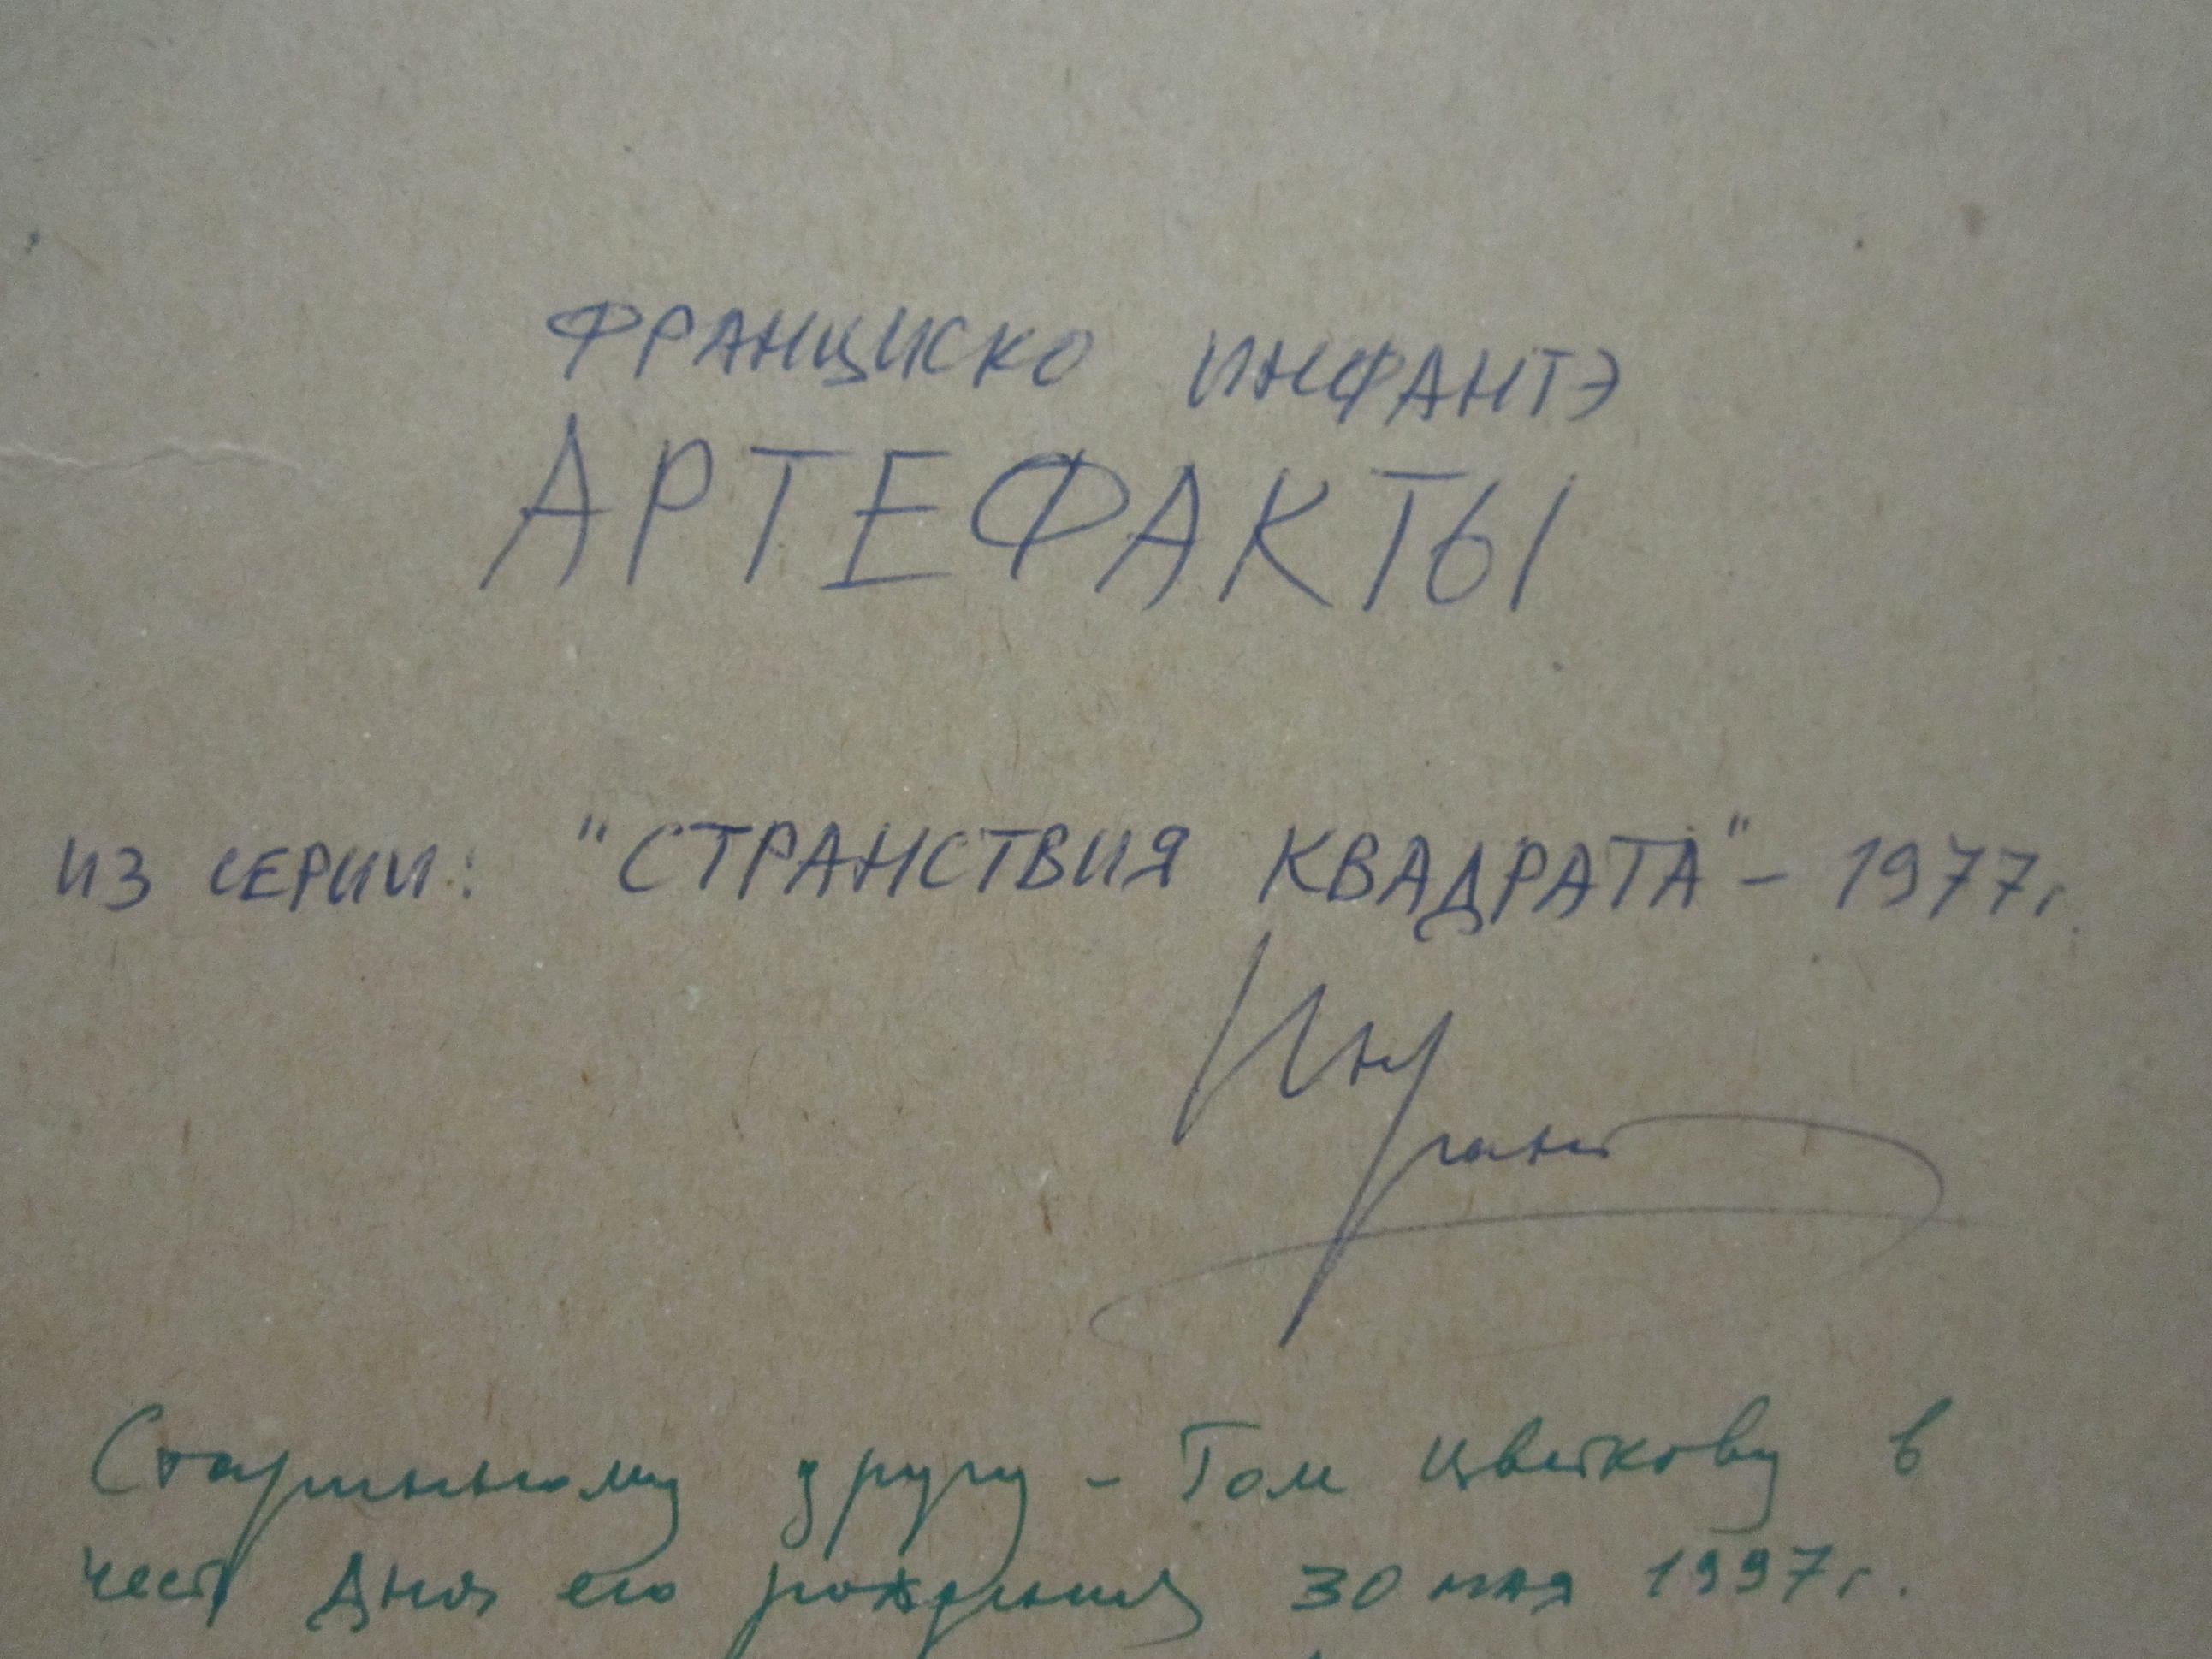 ФРАНЦИСКО ИНФАНТЭ
АРТЕФАКТЫ
ИЗ СЕРИИ: "СТРАНСТВИЯ КВАДРАТА" – 1977г.
Инфанте
Старинному другу – Том Цветкову в
честь дня его рождения 30 мая 1997г.